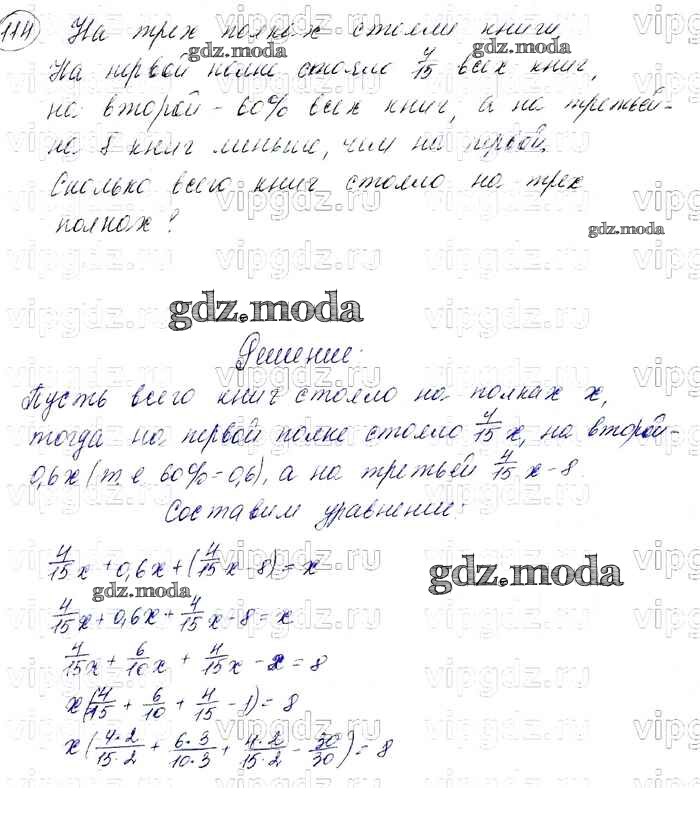 114 На трех полках стояли книги
gdz.moda
На первой полке стояло 4/15 всех книг,
на второй - 60% всех книг, а на третьей -
на 8 книг меньше, чем на первой.
Сколько всего книг стояло на трех
полках?
gdz.moda
gdz.moda
Решение:
Пусть всего книг стояло на полках x,
тогда на первой полке стояло 4/15 x, на второй -
0,6x (т.е 60% = 0,6), а на третьей 4/15 x - 8
Составим уравнение:
4/15 x + 0,6x + (4/15 x - 8) = x
gdz.moda
gdz.moda
4/15 x + 0,6x + 4/15 x - 8 = x
4/15 x + 6/10 x + 4/15 x - x = 8
x(4/15 + 6/10 + 4/15 - 1) = 8
x(4·2/15·2 + 6·3/10·3 + 4·2/15·2 - 30/30) = 8
vipgdz.ru